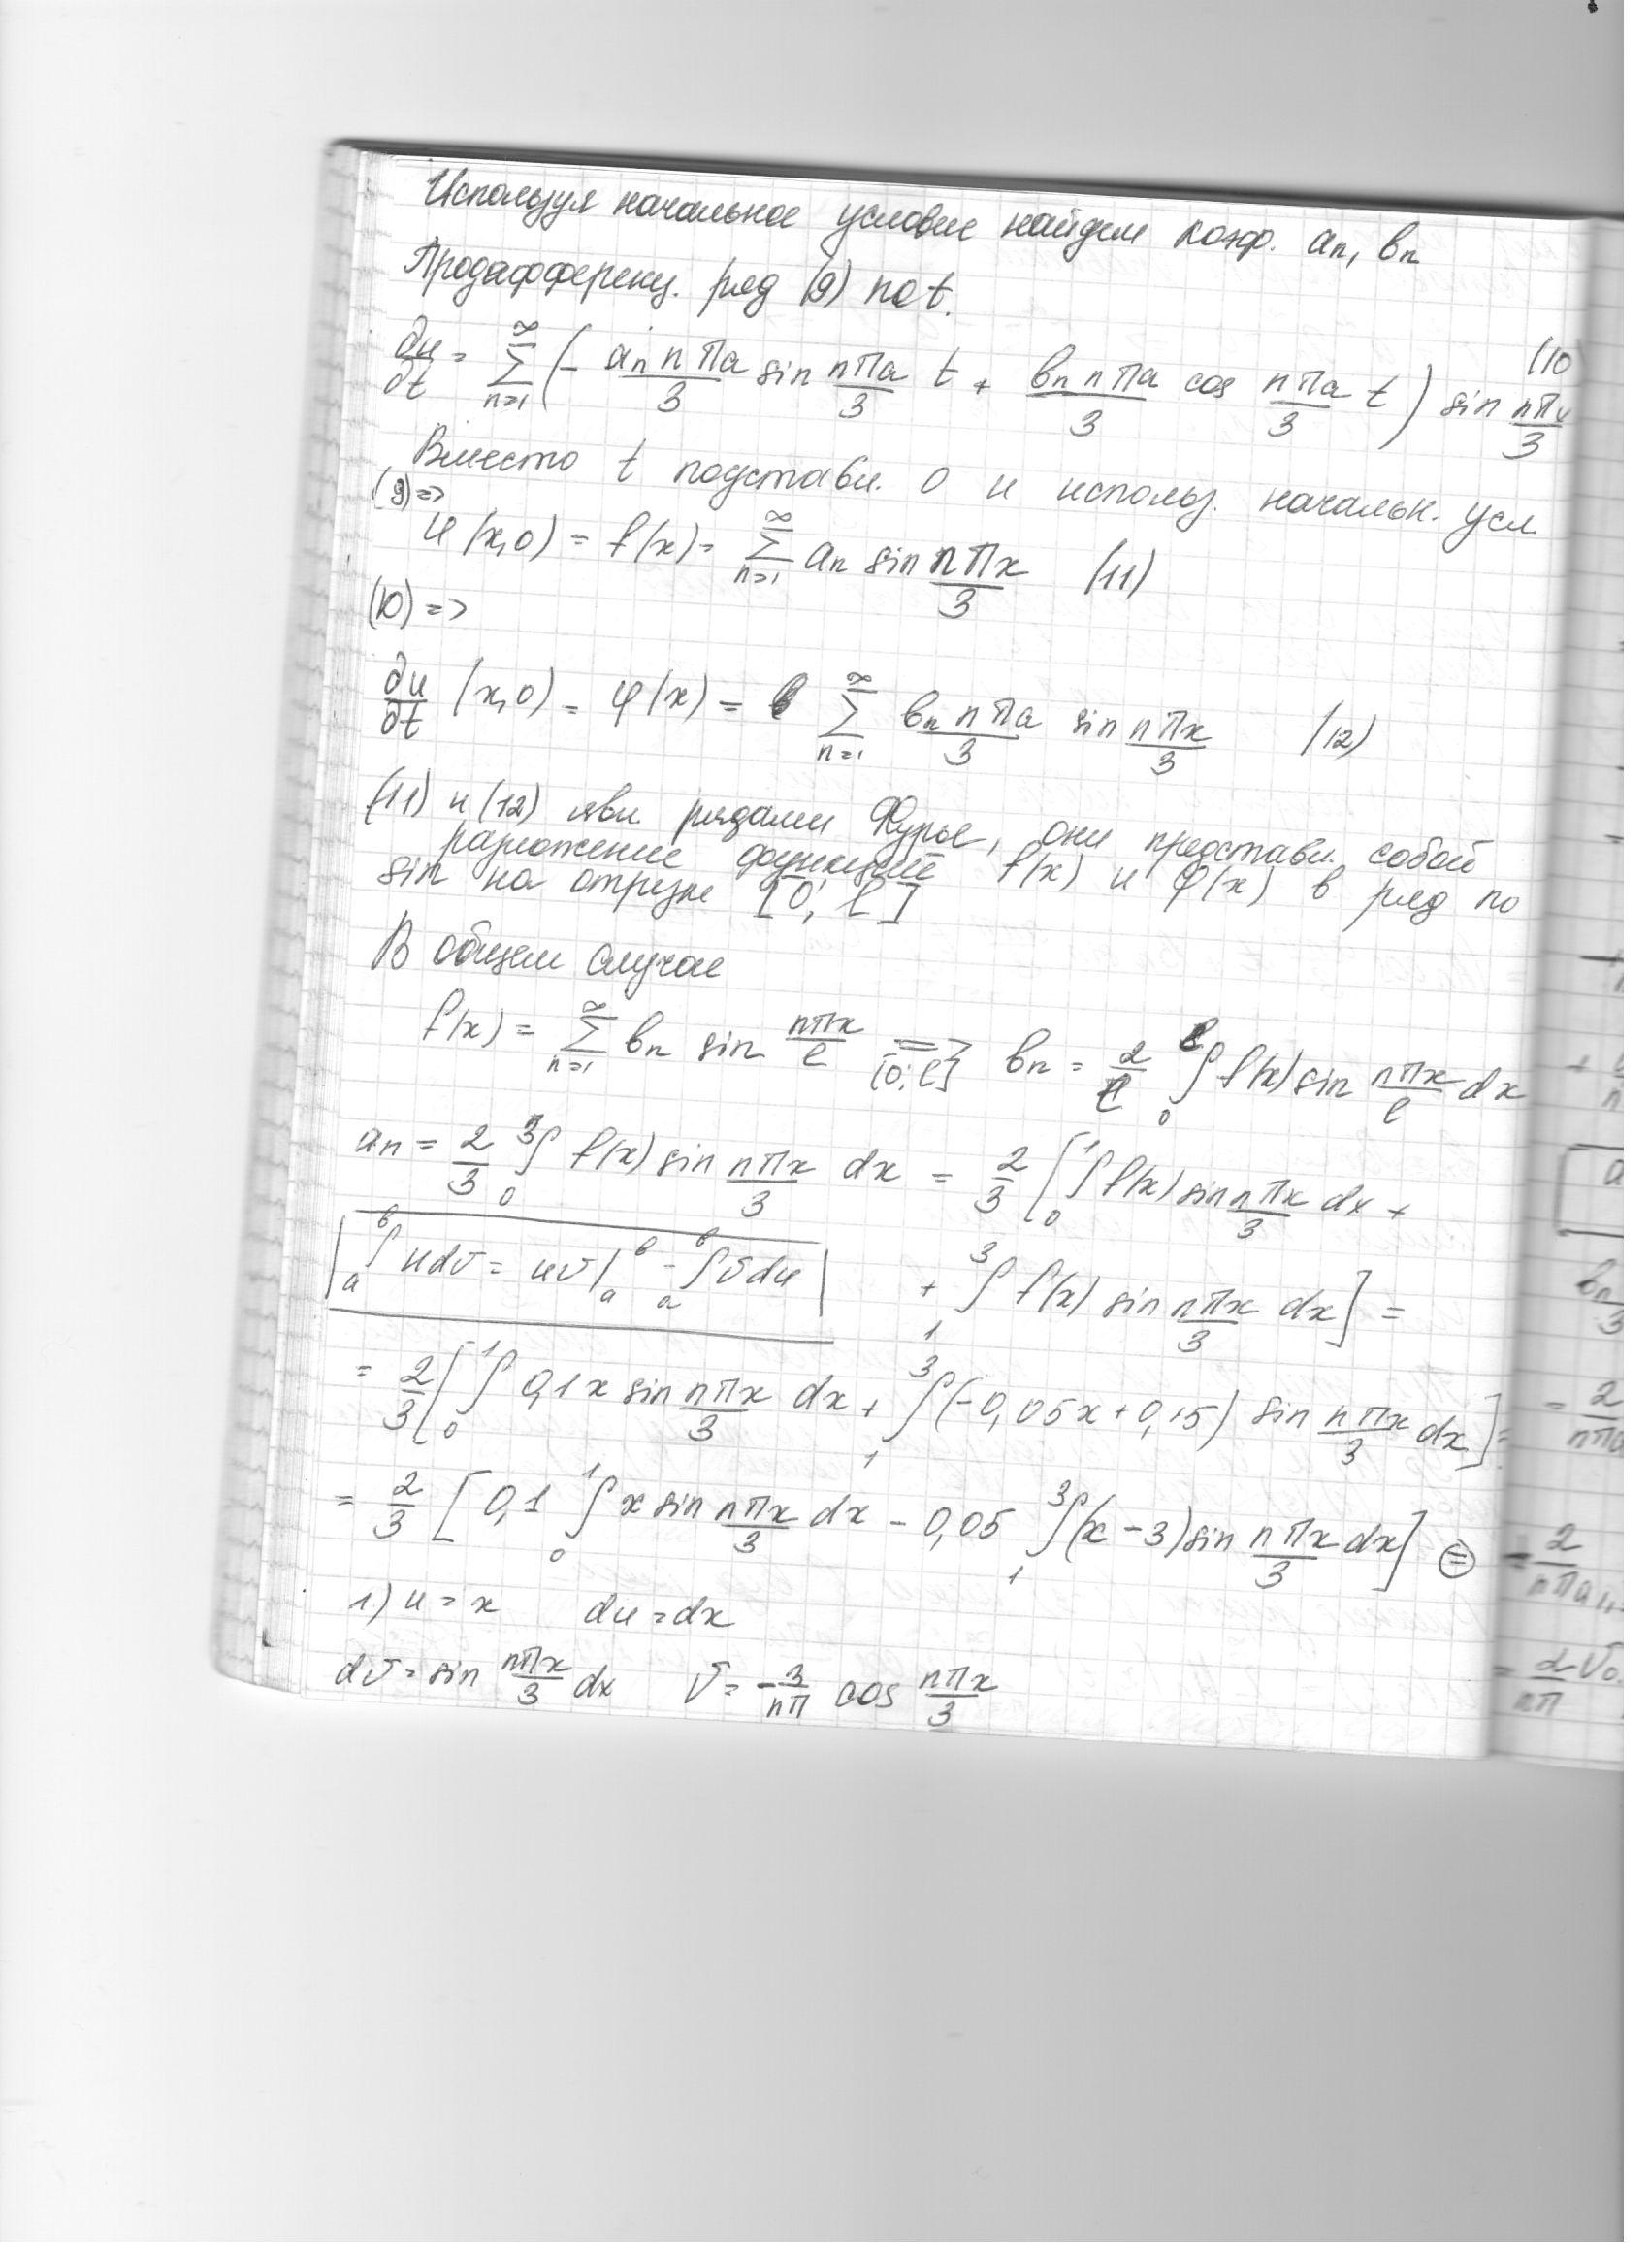 Используя начальное условие найдем коэф. aₙ, bₙ
Продифференц. ряд (9) по t.
∂u/∂t = ∑_{n=1}^{∞} (- aₙ n πa/3 sin nπa/3 t + bₙ n πa/3 cos nπa/3 t) sin nπx/3 (10
Вместо t подстави. 0 и использ. начальн. усл
(9) =>
u(x,0) = f(x) = ∑_{n=1}^{∞} aₙ sin nπx/3 (11)
(10) =>
∂u/∂t (x,0) = φ(x) = ∑_{n=1}^{∞} bₙ nπa/3 sin nπx/3 (12)
(11) и (12) явл. рядами Фурье, они представл. собой
разложение функций f(x) и φ(x) в ряд по
sin на отрезке [0; l]
В общем случае
f(x) = ∑_{n=1}^{∞} bₙ sin nπx/l => [0; l] bₙ = 2/l ∫₀^l f(x) sin nπx/l dx
aₙ = 2/3 ∫₀³ f(x) sin nπx/3 dx = 2/3 [∫₀¹ f(x) sin nπx/3 dx +
|∫ₐᵇ u dv = uv|ₐᵇ - ∫ₐᵇ v du| + ∫₁³ f(x) sin nπx/3 dx] =
= 2/3 [∫₀¹ 0,1x sin nπx/3 dx + ∫₁³ (-0,05x + 0,15) sin nπx/3 dx] =
= 2/3 [0,1 ∫₀¹ x sin nπx/3 dx - 0,05 ∫₁³ (x - 3) sin nπx/3 dx] =
1) u = x du = dx
dv = sin nπx/3 dx v = - 3/nπ cos nπx/3